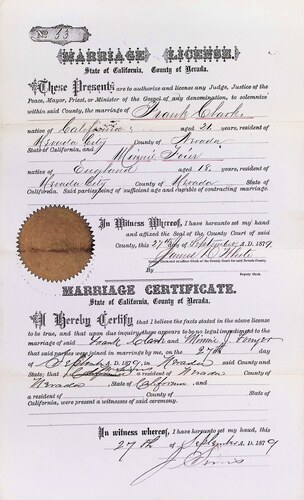 No. 83
MARRIAGE LICENSE,
State of California, County of Nevada.
These Presents are to authorize and license any Judge, Justice of the
Peace, Mayor, Priest, or Minister of the Gospel of any denomination, to solemnize
within said County, the marriage of Frank Clark
native of California aged 21 years, resident of
Nevada City County of Nevada
State of California, and Minnie
native of England aged 18 years, resident of
Nevada City County of Nevada State of
California. Said parties being of sufficient age and capable of contracting marriage.
In Witness Whereof, I have hereunto set my hand
and affixed the Seal of the County Court of said
County, this 27th day of September A. D. 1879
James White
County Clerk and ex-officio Clerk of the County Court for said Nevada County.
By
Deputy Clerk.
MARRIAGE CERTIFICATE.
State of California, County of Nevada.
I Hereby Certify that I believe the facts stated in the above license
to be true, and that upon due inquiry there appears to be no legal impediment to the
marriage of said Frank Clark and Minnie J.
that said parties were joined in marriage by me, on the 27th day
of September 1879, in Nevada said County and
State; that a resident of Nevada County of
Nevada, State of California and
a resident of County of
California, were present as witnesses of said ceremony.
In witness whereof, I have hereunto set my hand, this
27th of September A. D. 1879
J.